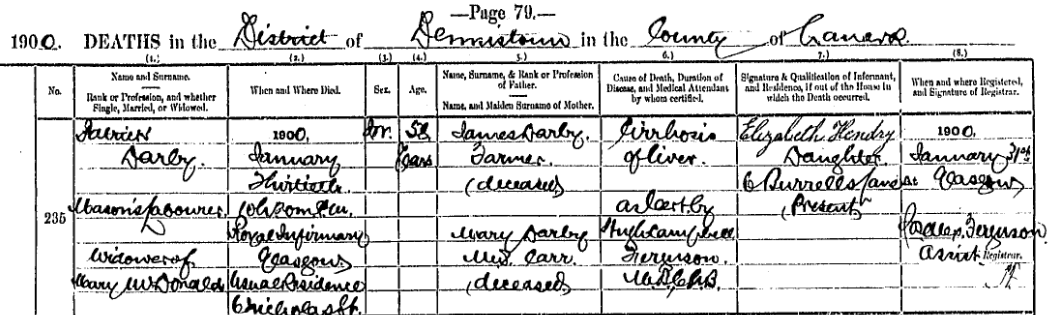 —Page 79.—
1900. DEATHS in the District of Dennistoun in the County of Lanark
(1.) (2.) (3.) (4.) (5.) (6.) (7.) (8.)
No.
Name and Surname.
Rank or Profession, and whether Single, Married, or Widowed.
When and Where Died.
Sex.
Age.
Name, Surname, & Rank or Profession of Father.
Name, and Maiden Surname of Mother.
Cause of Death, Duration of Disease, and Medical Attendant by whom certified.
Signature & Qualification of Informant, and Residence, if out of the House in which the Death occurred.
When and where Registered, and Signature of Registrar.
235
Patrick
Darby.
Mason's labourer
Widower of
Mary McDonald
1900.
January
Thirtieth
Royal Infirmary
Glasgow
Usual Residence
6 Nicholas St.
M.
58
Years
James Darby.
Farmer.
(deceased)
Mary Darby
M.S. Carr.
(deceased)
Cirrhosis
of liver.
as Cert by
Hugh Campbell
Ferguson.
M.B.Ch.B.
Elizabeth Hendry
Daughter.
6 Burrells Lane
(Present)
1900.
January 31st
At Glasgow
Ferguson
Assist Registrar.